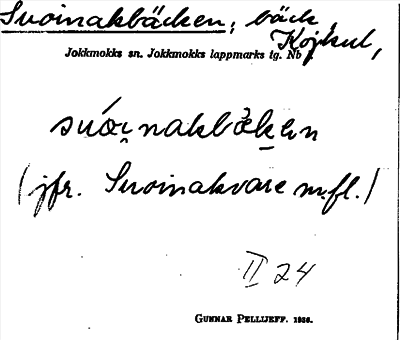 Suoinakbäcken, bäck,
Kojkul,
Jokkmokks sn. Jokkmokks lappmarks tg. Nb
suói̯nakbækən
(jfr. Suoinakvare m.fl.)
II 24
GUNNAR PELLIJEFF. 1936.